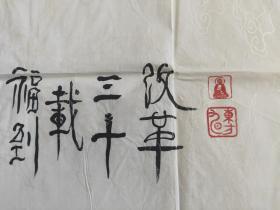 改革
三十
載
福到